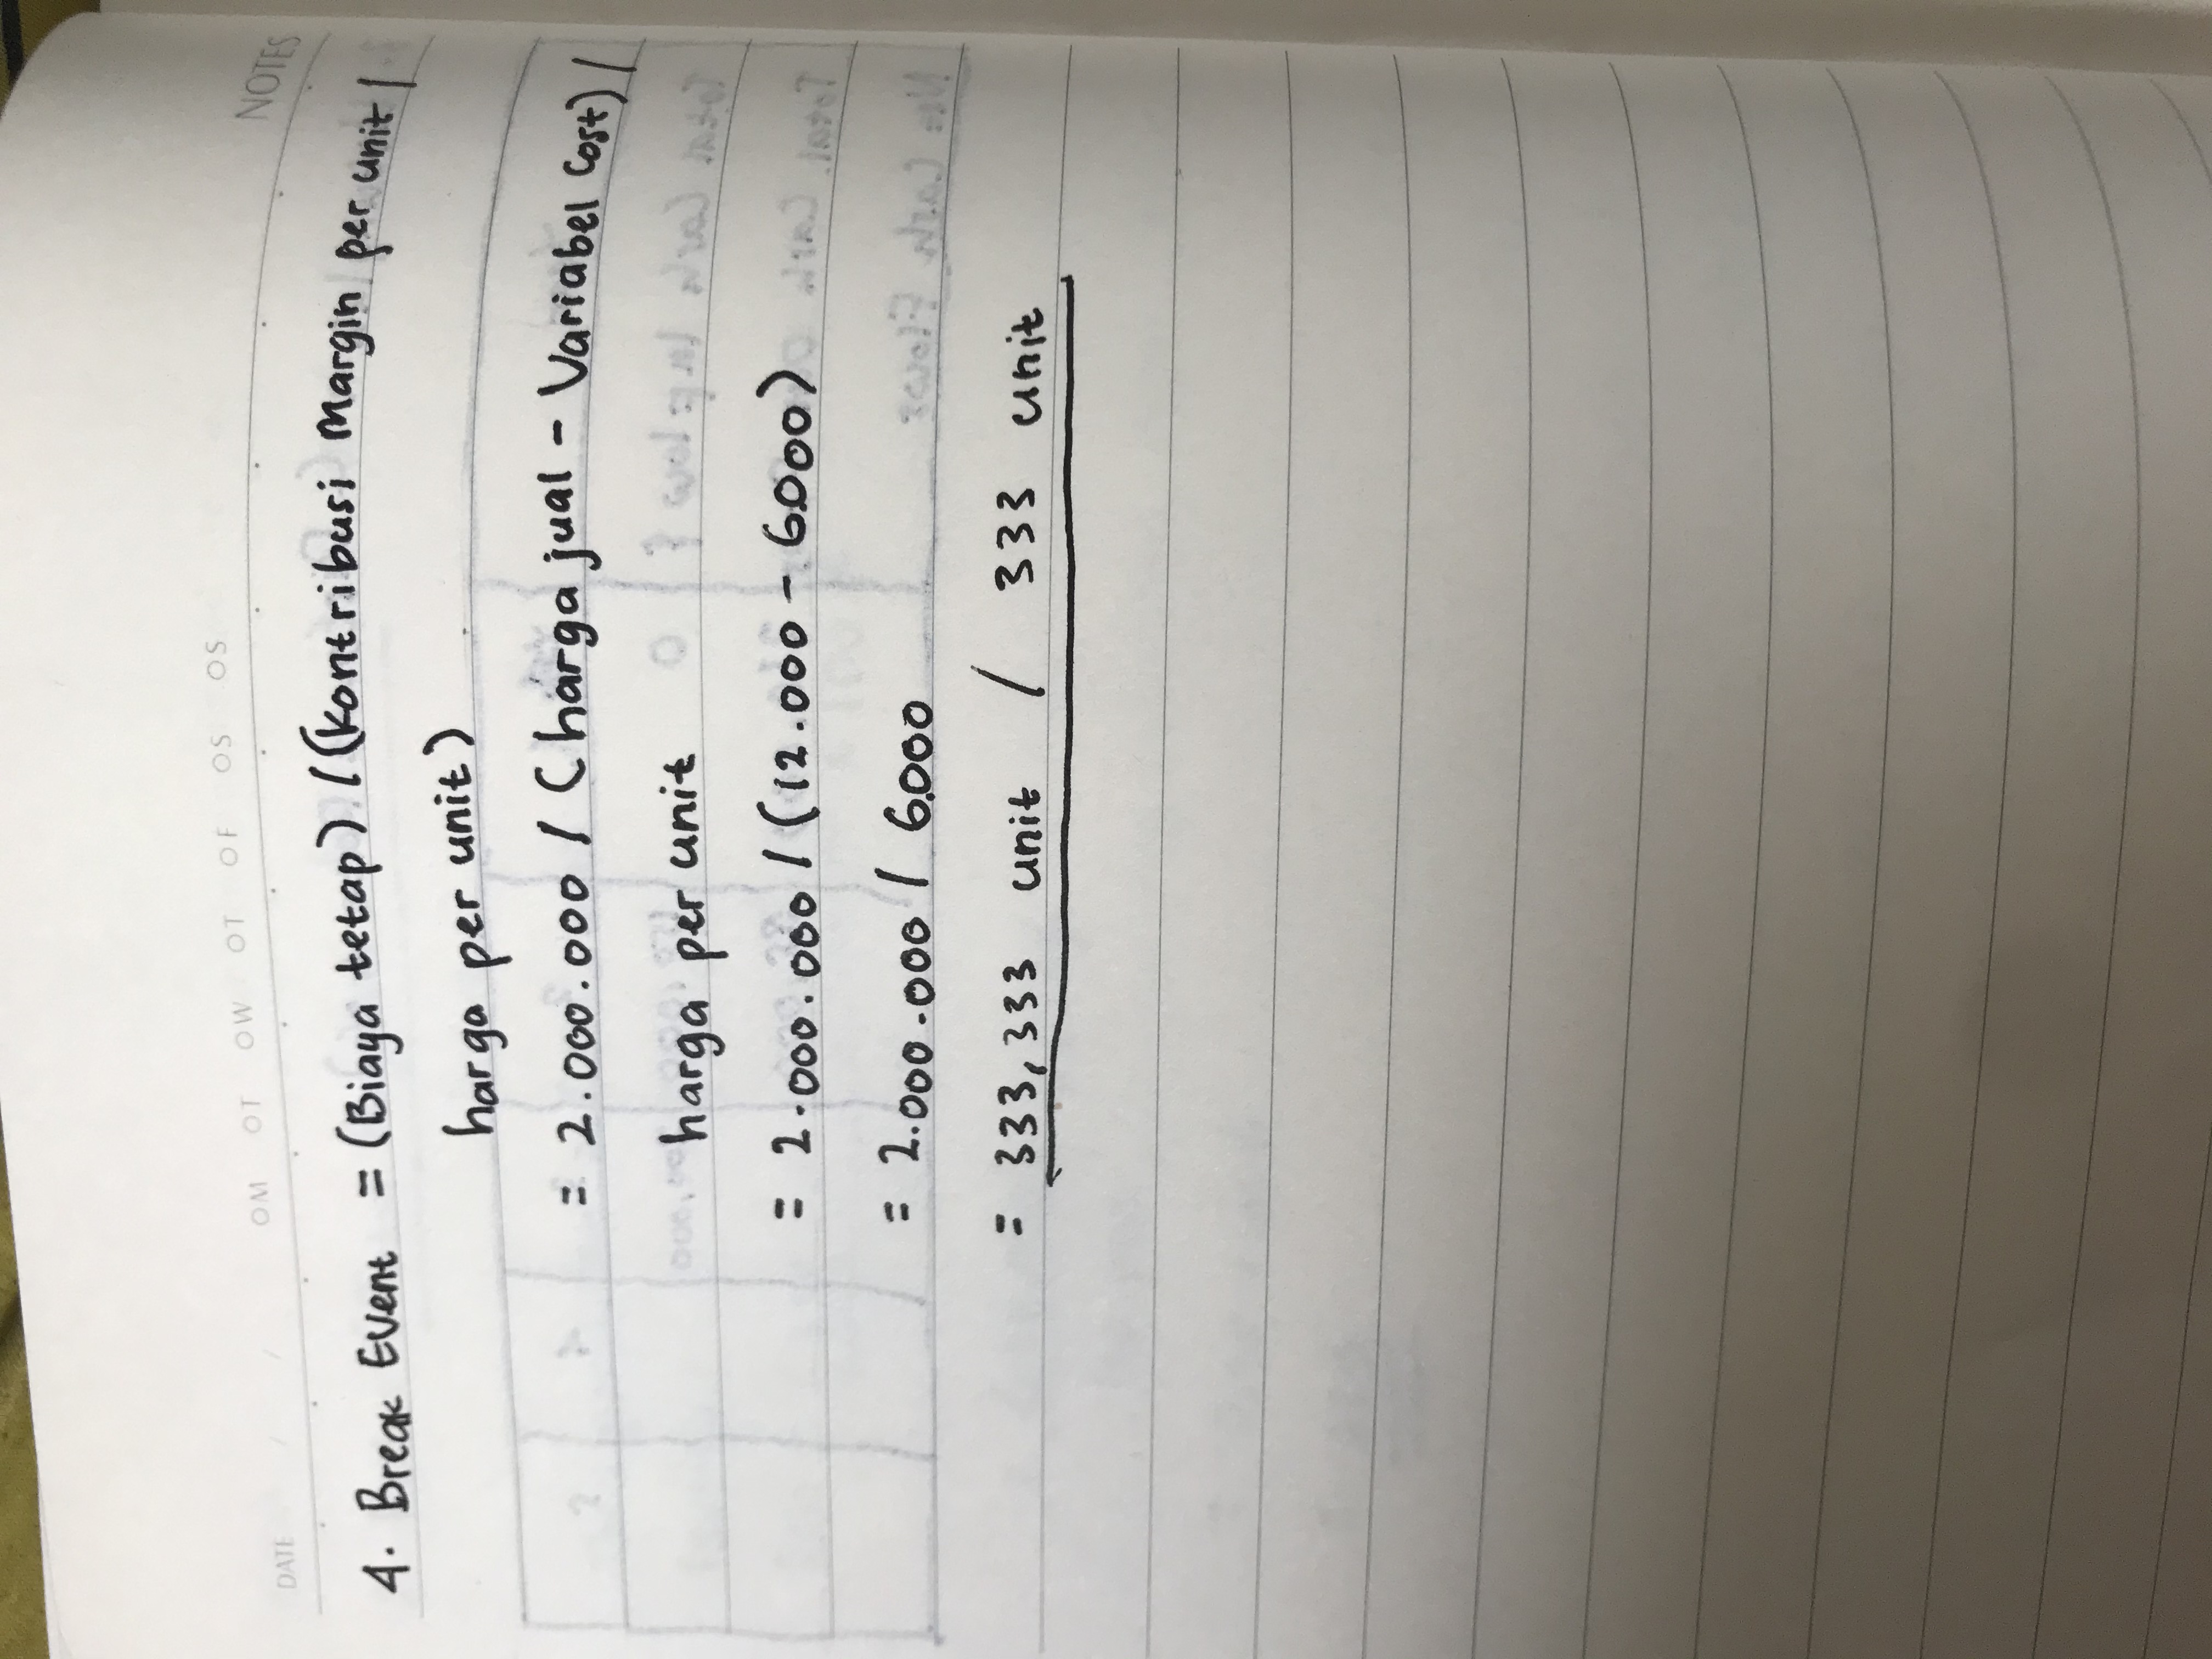 DATE / / OM OT OW OT OF OS OS NOTES
4. Break Event = (Biaya tetap) / (Kontribusi Margin per unit /
harga per unit)
= 2.000.000 / (harga jual - Variabel Cost) /
harga per unit
= 2.000.000 / (12.000 - 6.000)
= 2.000.000 / 6.000
= 333,333 unit / 333 unit